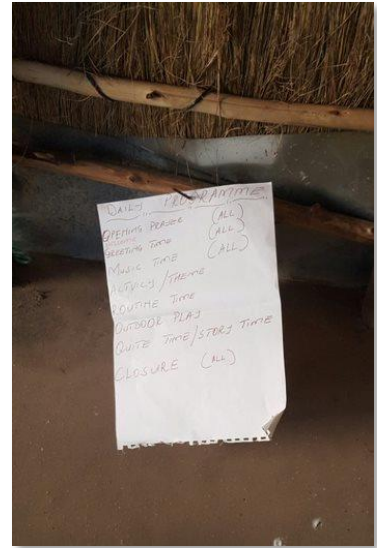 DAILY PROGRAMME
OPENING PRAYER (ALL)
GREETING TIME (ALL)
MUSIC TIME (ALL)
ACTIVITY/THEME
ROUTINE TIME
OUTDOOR PLAY
QUITE TIME/STORY TIME
CLOSURE (ALL)